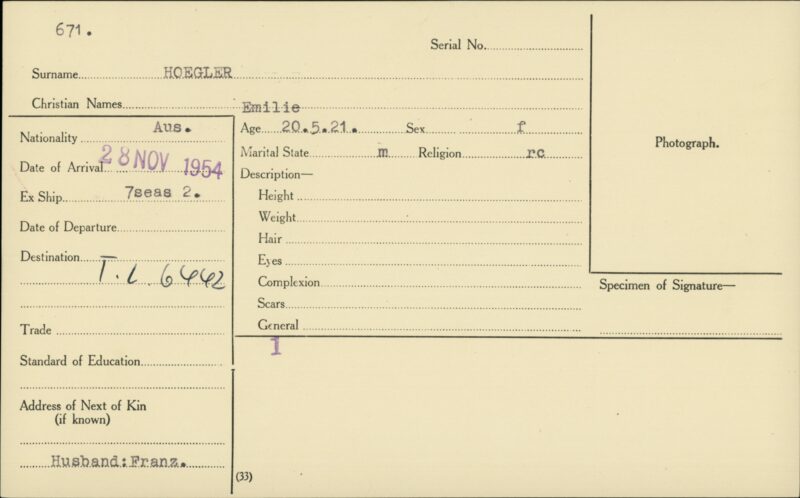 671.
Serial No.
Surname HOEGLER
Christian Names Emilie
Nationality Aus.
Date of Arrival 28 NOV 1954
Ex Ship 7seas 2.
Date of Departure
Destination T.L. 6442
Trade
Standard of Education
Address of Next of Kin
(if known)
Husband:Franz.
Age 20.5.21. Sex f
Marital State m Religion rc
Description—
Height
Weight
Hair
Eyes
Complexion
Scars
General
1
(33)
Photograph.
Specimen of Signature—